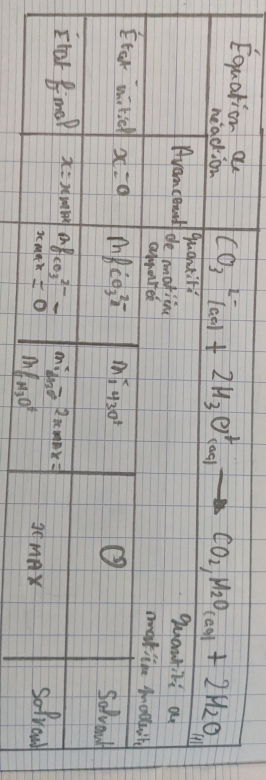 Équation de réaction
CO₃²⁻(aq) + 2H₃O⁺(aq) → CO₂,H₂O(aq) + 2H₂O(l)
Avancement
quantité de matière apportée
quantité de matière produite
État initial
x=0
ni H₃O⁺
0
Solvant
État final
x=xMAX
xMAX = 0
2xMAX =
nf H₃O⁺
xMAX
Solvant